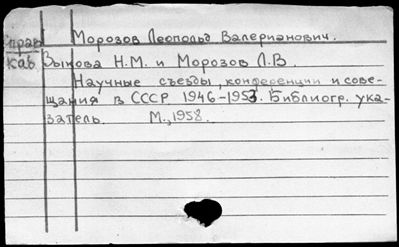 Справ Морозов Леопольд Валерианович.
каб Зыкова Н.М. и Морозов Л.В.
Научные съезды, конференции и сове-
щания в СССР 1946-1953. Библиогр. ука-
затель. М., 1958.